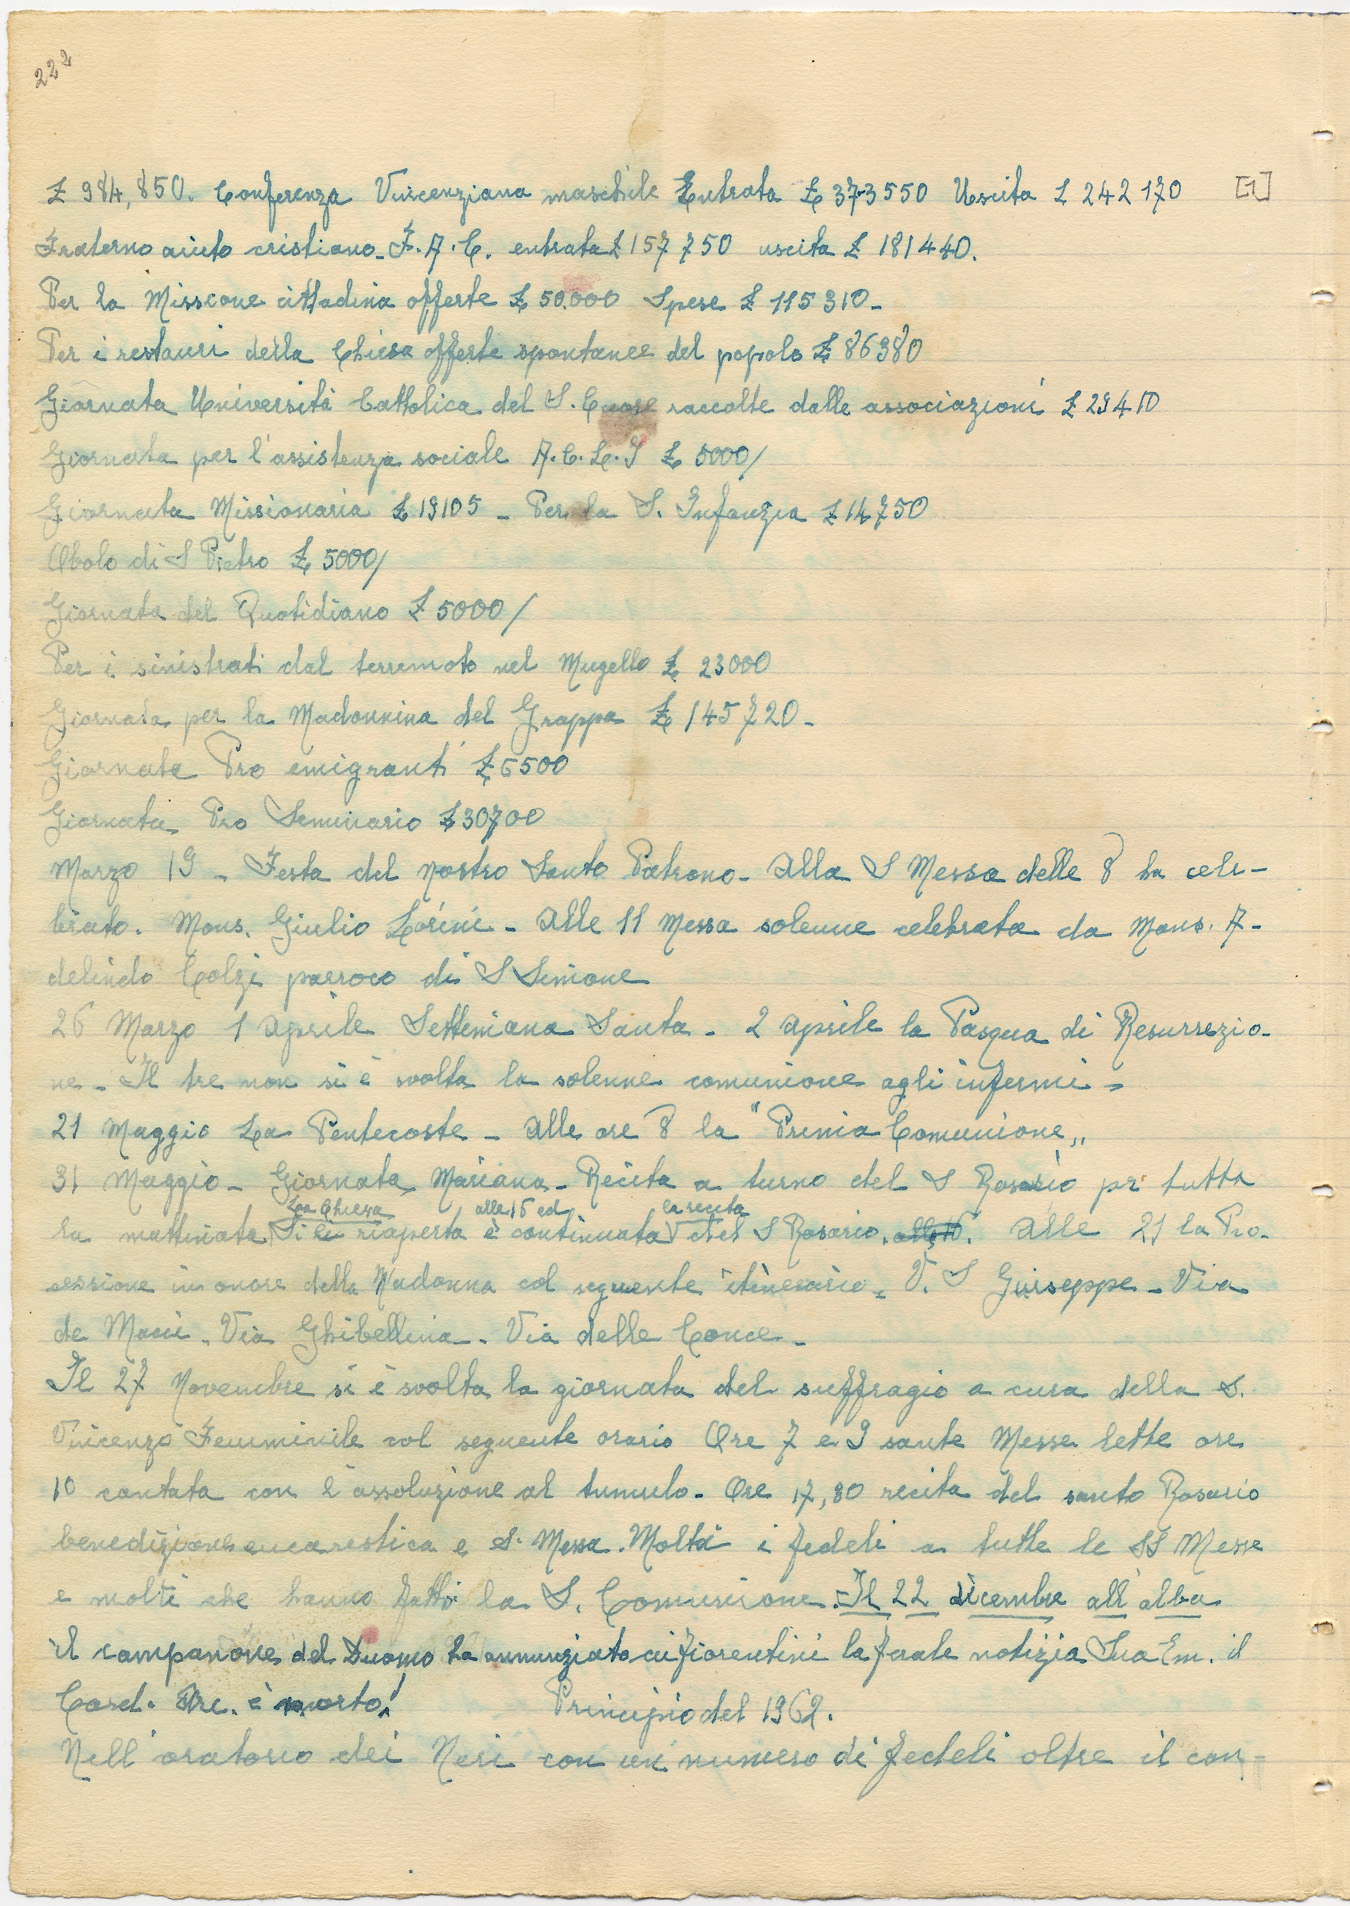 222
£ 984,850. Conferenza Vincenziana maschile Entrata £ 373550 Uscita £ 242170 [1]
Fraterno aiuto cristiano - F.A.C. entrata £ 157750 uscita £ 181440.
Per la Missione cittadina offerte £ 50.000 Spese £ 115310 -
Per i restauri della Chiesa offerte spontanee del popolo £ 86980
Giornata Università Cattolica del S. Cuore raccolte dalle associazioni £ 29410
Giornata per l'assistenza sociale A.C.L.I £ 5000/
Giornata Missionaria £ 19105 - Per la S. Infanzia £ 14750
Obolo di S Pietro £ 5000/
Giornata del Quotidiano £ 5000/
Per i sinistrati dal terremoto nel Mugello £ 23000
Giornata per la Madonnina del Grappa £ 145720 -
Giornata Pro emigranti £ 6500
Giornata Pro Seminario £ 30700
Marzo 19 - Festa del nostro Santo Patrono - Alla S Messa delle 8 ha cele-
brato. Mons. Giulio Lorini - Alle 11 Messa solenne celebrata da Mons. A-
delindo Colzi parroco di S Simone
26 Marzo 1 Aprile Settimana Santa - 2 Aprile la Pasqua di Resurrezio-
ne - Il tre non si è svolta la solenne comunione agli infermi -
21 Maggio La Pentecoste - Alle ore 8 la "Prima Comunione"
31 Maggio - Giornata Mariana - Recita a turno del S Rosario pr tutta
la Chiesa alle 16 ed la recita
la mattinata Si è riaperta è continuata del S Rosario. alle 16. Alle 21 la Pro-
cessione in onore della Madonna col seguente itinerario - V. S Giuseppe - Via
de Macci - Via Ghibellina - Via delle Conce -
Il 27 Novembre si è svolta la giornata del suffragio a cura della S.
Vincenzo Femminile col seguente orario Ore 7 e 9 sante Messe lette ore
10 cantata con l'assoluzione al tumulo - Ore 17,30 recita del santo Rosario
benedizione eucarestica e S. Messa. Molti i fedeli a tutte le SS Messe
e molti che hanno fatto la S. Comunione. Il 22 dicembre all'alba
il campanone del Duomo ha annunziato ai fiorentini la ferale notizia Sua Em. il
Card. Arc. è morto! Principio del 1962.
Nell'oratorio dei Neri con un numero di fedeli oltre il con-